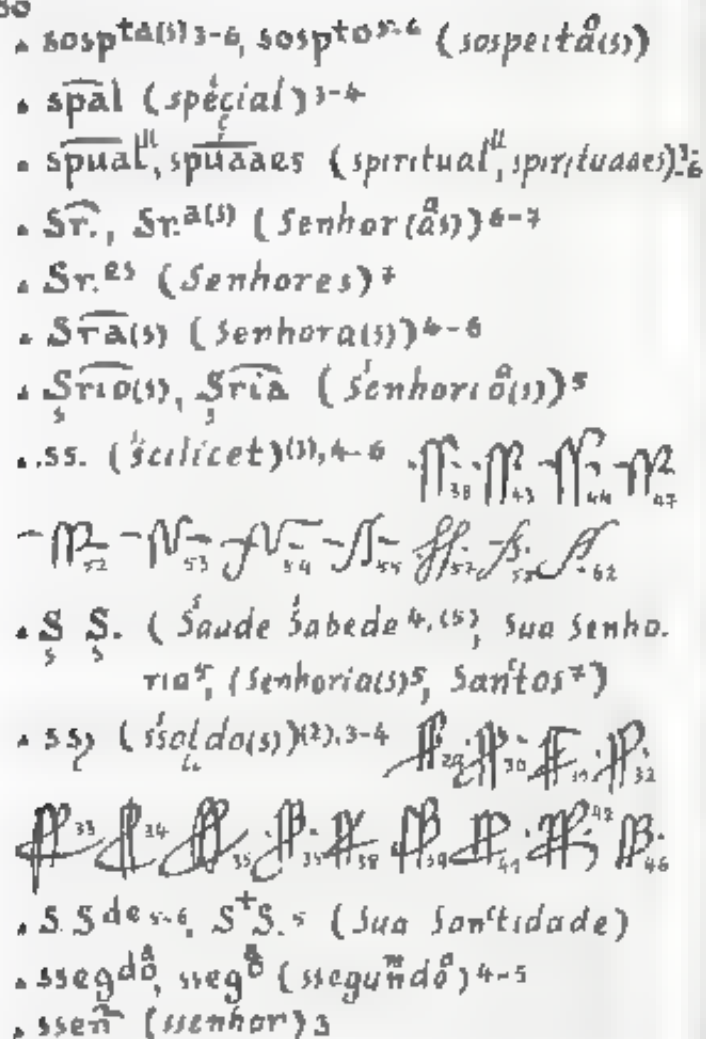 50
. sospta(s) 3-6, sospto 5-6 (sospeitåo(s))
. spal (special) 3-4
. spual, spuaaes (spiritual, spirituaaes)
. Sr., Sr.a(s) (Senhor(as)) 6-7
. Sr.es (Senhores) 7
. Sra(s) (Senhora(s)) 4-6
. Srio(s), Sria (Senhorio(s)) 5
. .ss. (scilicet) (3), 4-6 38 43 44 47
52 53 54 55 57 62
. S S. (Saude Sabede 4, (5), Sua Senho.
ria 5, (Senhoria(s) 5, Santos 7)
. ss (ssoldo(s)) (2), 3-4 30 32
33 34 35 38 41 42 46
. S Sde 5-6, S+S. 5 (Sua Santidade)
. ssegdo, sseg (ssegundo) 4-5
. ssen (ssenhor) 3